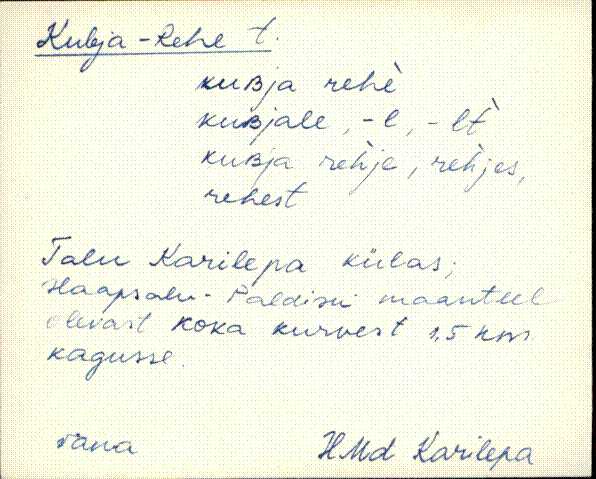 Kubja-Rehe t.
kuʙja rehè
kuʙjale, -l, -lt̀
kuʙja rehje, rehjes,
rehest
Talu Karilepa külas;
Haapsalu-Paldiski maanteel
olevast Koka kurvest 1,5 km
kagusse.
vana
HMd Karilepa